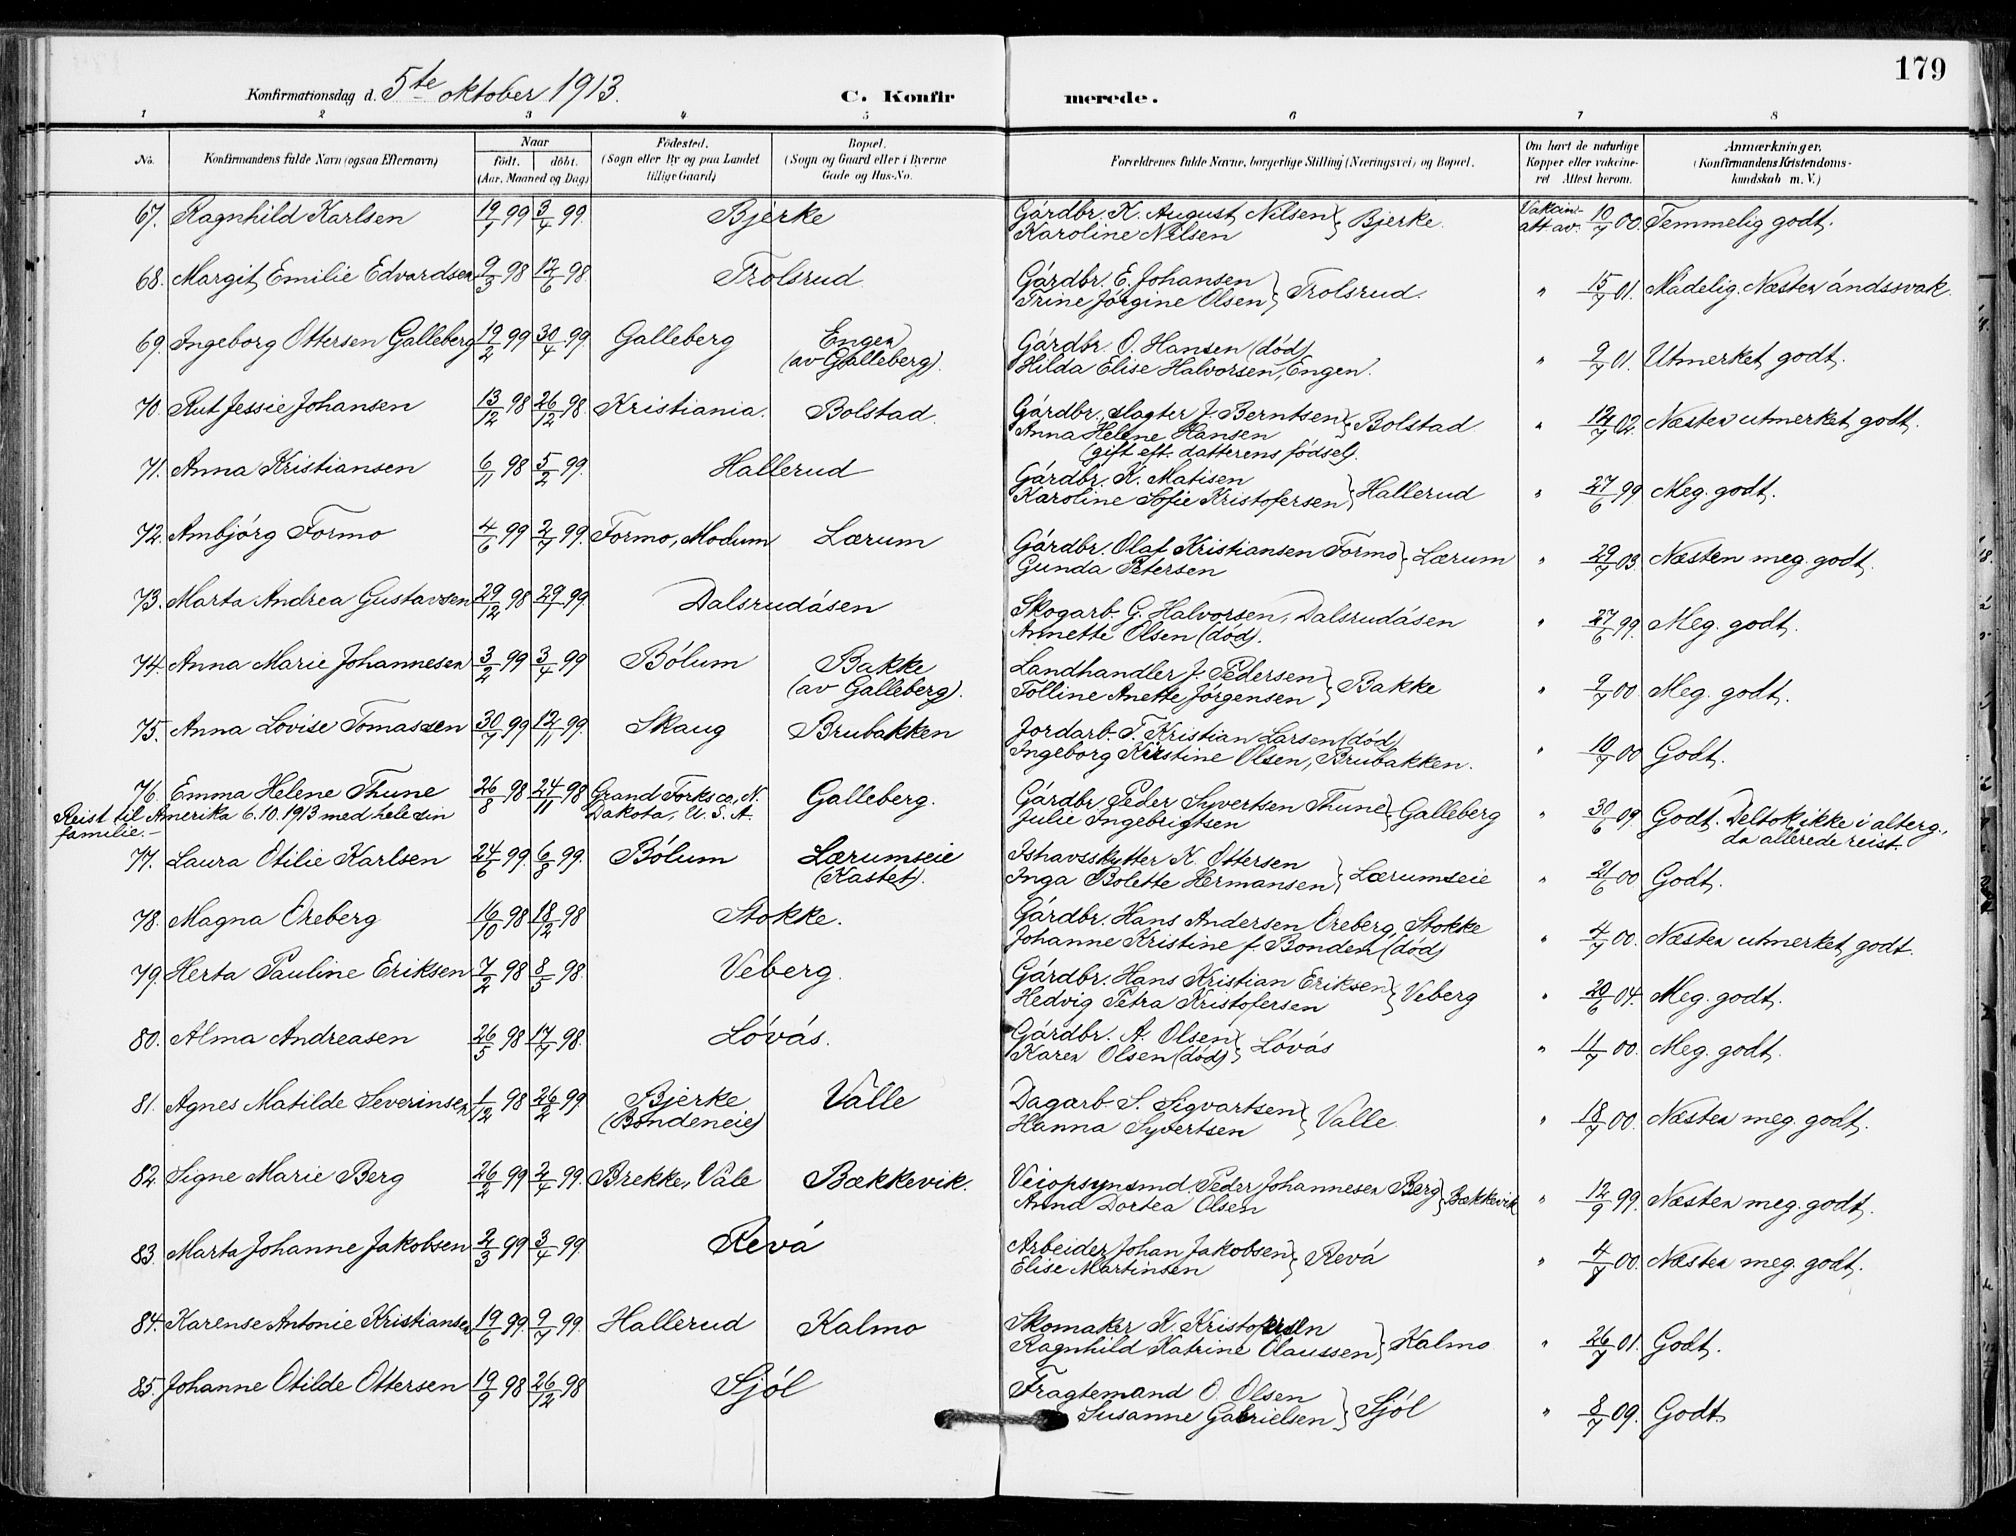 179
Konfirmationsdag d. 5te oktober 1913.
C. Konfirmerede.
1 2 3 4 5 6 7 8
No. Konfirmandens fulde Navn (ogsaa Efternavn) Naar født. døbt. (Aar, Maaned og Dag) Fødested. (Sogn eller By og paa Landet tillige Gaard) Bopæl. (Sogn og Gaard eller i Byerne Gade og Hus-No. Forældrenes fulde Navne, borgerlige Stilling (Næringsvei) og Bopæl. Om havt de naturlige Kopper eller vakcineret Attest herom. Anmærkninger. (Konfirmandens Kristendomskundskab m. V.)
67. Ragnhild Karlsen 19/1 99 3/4 99. Bjerke Gårdbr. K. August Nilsen Karoline Nilsen } Bjerke. Vakcinatt av. 10/7 00. Temmelig godt.
68. Margit Emilie Edvardsen 9/3 98 12/6 98. Trolsrud Gårdbr. E. Johansen Trine Jørgine Olsen } Trolsrud. " 15/7 01. Mådelig. Næsten åndssvak.
69. Ingeborg Ottersen Galleberg 19/2 99 30/4 99. Galleberg Engen (av Galleberg). Gårdbr. O. Hansen (død) Hilda Elise Halvorsen, Engen. " 9/7 01. Utmerket godt.
70. Rut Jessie Johansen 13/12 98 26/12 98. Kristiania. Bolstad. Gårdbr., slagter J. Berntsen Anna Helene Hansen } Bolstad (gift eft. datterens fødsel). " 12/7 02. Næsten utmerket godt.
71. Anna Kristiansen 6/11 98 5/2 99. Hallerud Gårdbr. K. Matisen Karoline Sofie Kristofersen } Hallerud " 27/6 99 Meg. godt.
72. Ambjørg Formo 4/6 99 2/7 99. Formo, Modum Lærum Gårdbr. Olaf Kristiansen Formo Gunda Petersen } Lærum " 29/7 03. Næsten meg. godt.
73. Marta Andrea Gustavsen 29/12 98 29/1 99. Dalsrudåsen Skogarb. G. Halvorsen, Dalsrudåsen Annette Olsen (død). " 27/6 99. Meg. godt.
74. Anna Marie Johannesen 3/2 99 3/4 99 Bølum Bakke (av Galleberg). Landhandler J. Pedersen Tolline Anette Jørgensen } Bakke " 9/7 00. Meg. godt.
75. Anna Lovise Tomassen 30/7 99 12/11 99. Skaug Brubakken Jordarb. T. Kristian Larsen (død) Ingeborg Kristine Olsen, Brubakken. " 10/7 00 Godt.
76. Emma Helene Thune 26/8 98 24/11 98 Grand Forks co., N. Dakota, U. S. A. Galleberg. Gårdbr. Peder Syvertsen Thune Julie Ingebrigtsen } Galleberg " 30/6 09. Godt. Deltok ikke i alterg., da allerede reist.
Reist til Amerika 6.10.1913 med hele sin familie.-
77. Laura Otilie Karlsen 24/6 99. 6/8 99. Bølum Lærumseie (Kastet). Ishavsskytter K. Ottersen Inga Bolette Hermansen } Lærumseie " 21/6 00 Godt.
78. Magna Oreberg 16/10 98 18/12 98 Stokke. Gårdbr. Hans Andersen Oreberg, Stokke Johanne Kristine f. Bonden (død) " 4/7 00. Næsten utmerket godt.
79. Herta Pauline Eriksen 7/2 98 8/5 98. Veberg. Gårdbr. Hans Kristian Eriksen Hedvig Petra Kristofersen } Veberg " 20/6 04. Meg. godt.
80. Alma Andreasen 26/5 98 17/7 98. Løvås. Gårdbr. A. Olsen Karen Olsen (død) } Løvås " 11/7 00. Meg. godt.
81. Agnes Matilde Severinsen 1/12 98 26/2 99 Bjerke (Bondeneie) Valle Dagarb. S. Sigvartsen Hanna Syvertsen } Valle. " 18/7 00. Næsten meg. godt.
82. Signe Marie Berg 26/2 99 2/4 99. Brekke, Våle Bækkevik. Veiopsynsmd. Peder Johannesen Berg Anna Dortea Olsen } Bækkevik " 12/9 99. Næsten meg. godt.
83. Marta Johanne Jakobsen 2/3 99 3/4 99. Revå Arbeider Johan Jakobsen Elise Martinsen } Revå " 4/7 00. Næsten meg. godt.
84. Karense Antonie Kristiansen 19/6 99. 9/7 99. Hallerud Kalmo Skomaker K. Kristofersen Ragnhild Katrine Olaussen } Kalmo " 26/7 01. Godt.
85. Johanne Otilde Ottersen 19/9 98 26/12 98 Sjøl Fragtemand O. Olsen Susanne Gabrielsen } Sjøl " 8/7 09. Godt